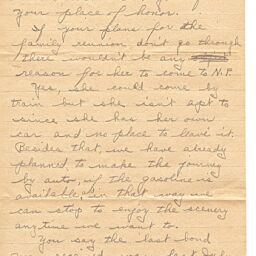 your place of honor.
If your plans for the
family reunion don't go through
there wouldn't be any
reason for her to come to N.P.
Yes, she could come by
train but she isn't apt to
since she has her own
car and no place to leave it.
Besides that, we have already
planned to make the journey
by auto, if the gasoline is
available, in that way we
can stop to enjoy the scenery
anytime we want to.
You say the last bond
you received was last July